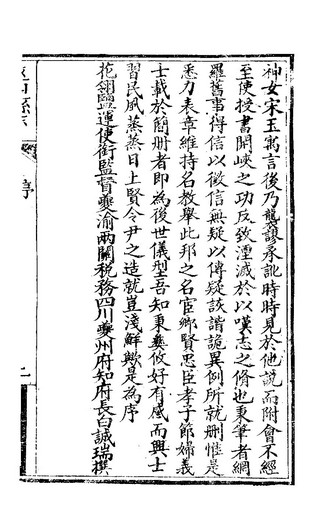 神女宋玉寓言後乃襲謬承訛時時見於他説而附會不經
至使授書開峽之功反致湮滅於以嘆志之脩也秉筆者網
羅舊事得信以徵信無疑以傳疑詼諧詭異例所就刪惟是
悉力表章維持名教舉此邦之名宦鄉賢忠臣孝子節婦義
士載於簡册者即為後世儀型吾知秉彝攸好有感而興士
習民風蒸蒸日上賢令尹之造就豈淺鮮歟是為序
花翎鹽運使銜監督夔渝兩關税務四川夔州府知府長白誠瑞撰
巫山縣志
序